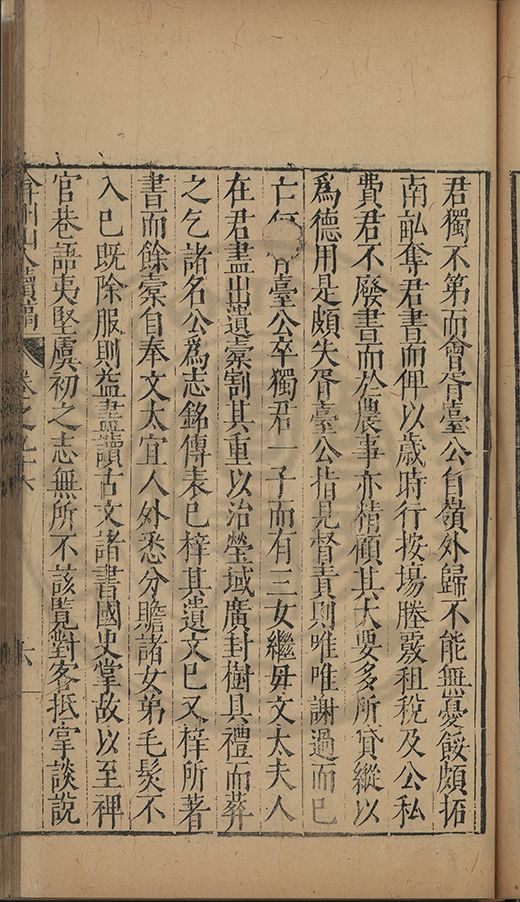 君獨不第而會胥臺公自嶺外歸不能無憂餒頗拓
南畝奪君書而俾以歲時行按塲塍覈租稅及公私
費君不廢書而於農事亦精顧其大要多所貸縱以
爲德用是頗失胥臺公指見督責則唯唯謝過而已
亡何胥臺公卒獨君一子而有三女繼毋文太夫人
在君盡出遺橐割其重以治塋域廣封樹具禮而葬
之乞諸名公爲志銘傳表已梓其遺文已又梓所著
書而餘橐自奉文太宜人外悉分贍諸女弟毛髮不
入已既除服則益盡讀古文諸書國史掌故以至稗
官巷語夷堅虞初之志無所不該覽對客抵掌談說
弇州山人續稿 卷之九十六 六